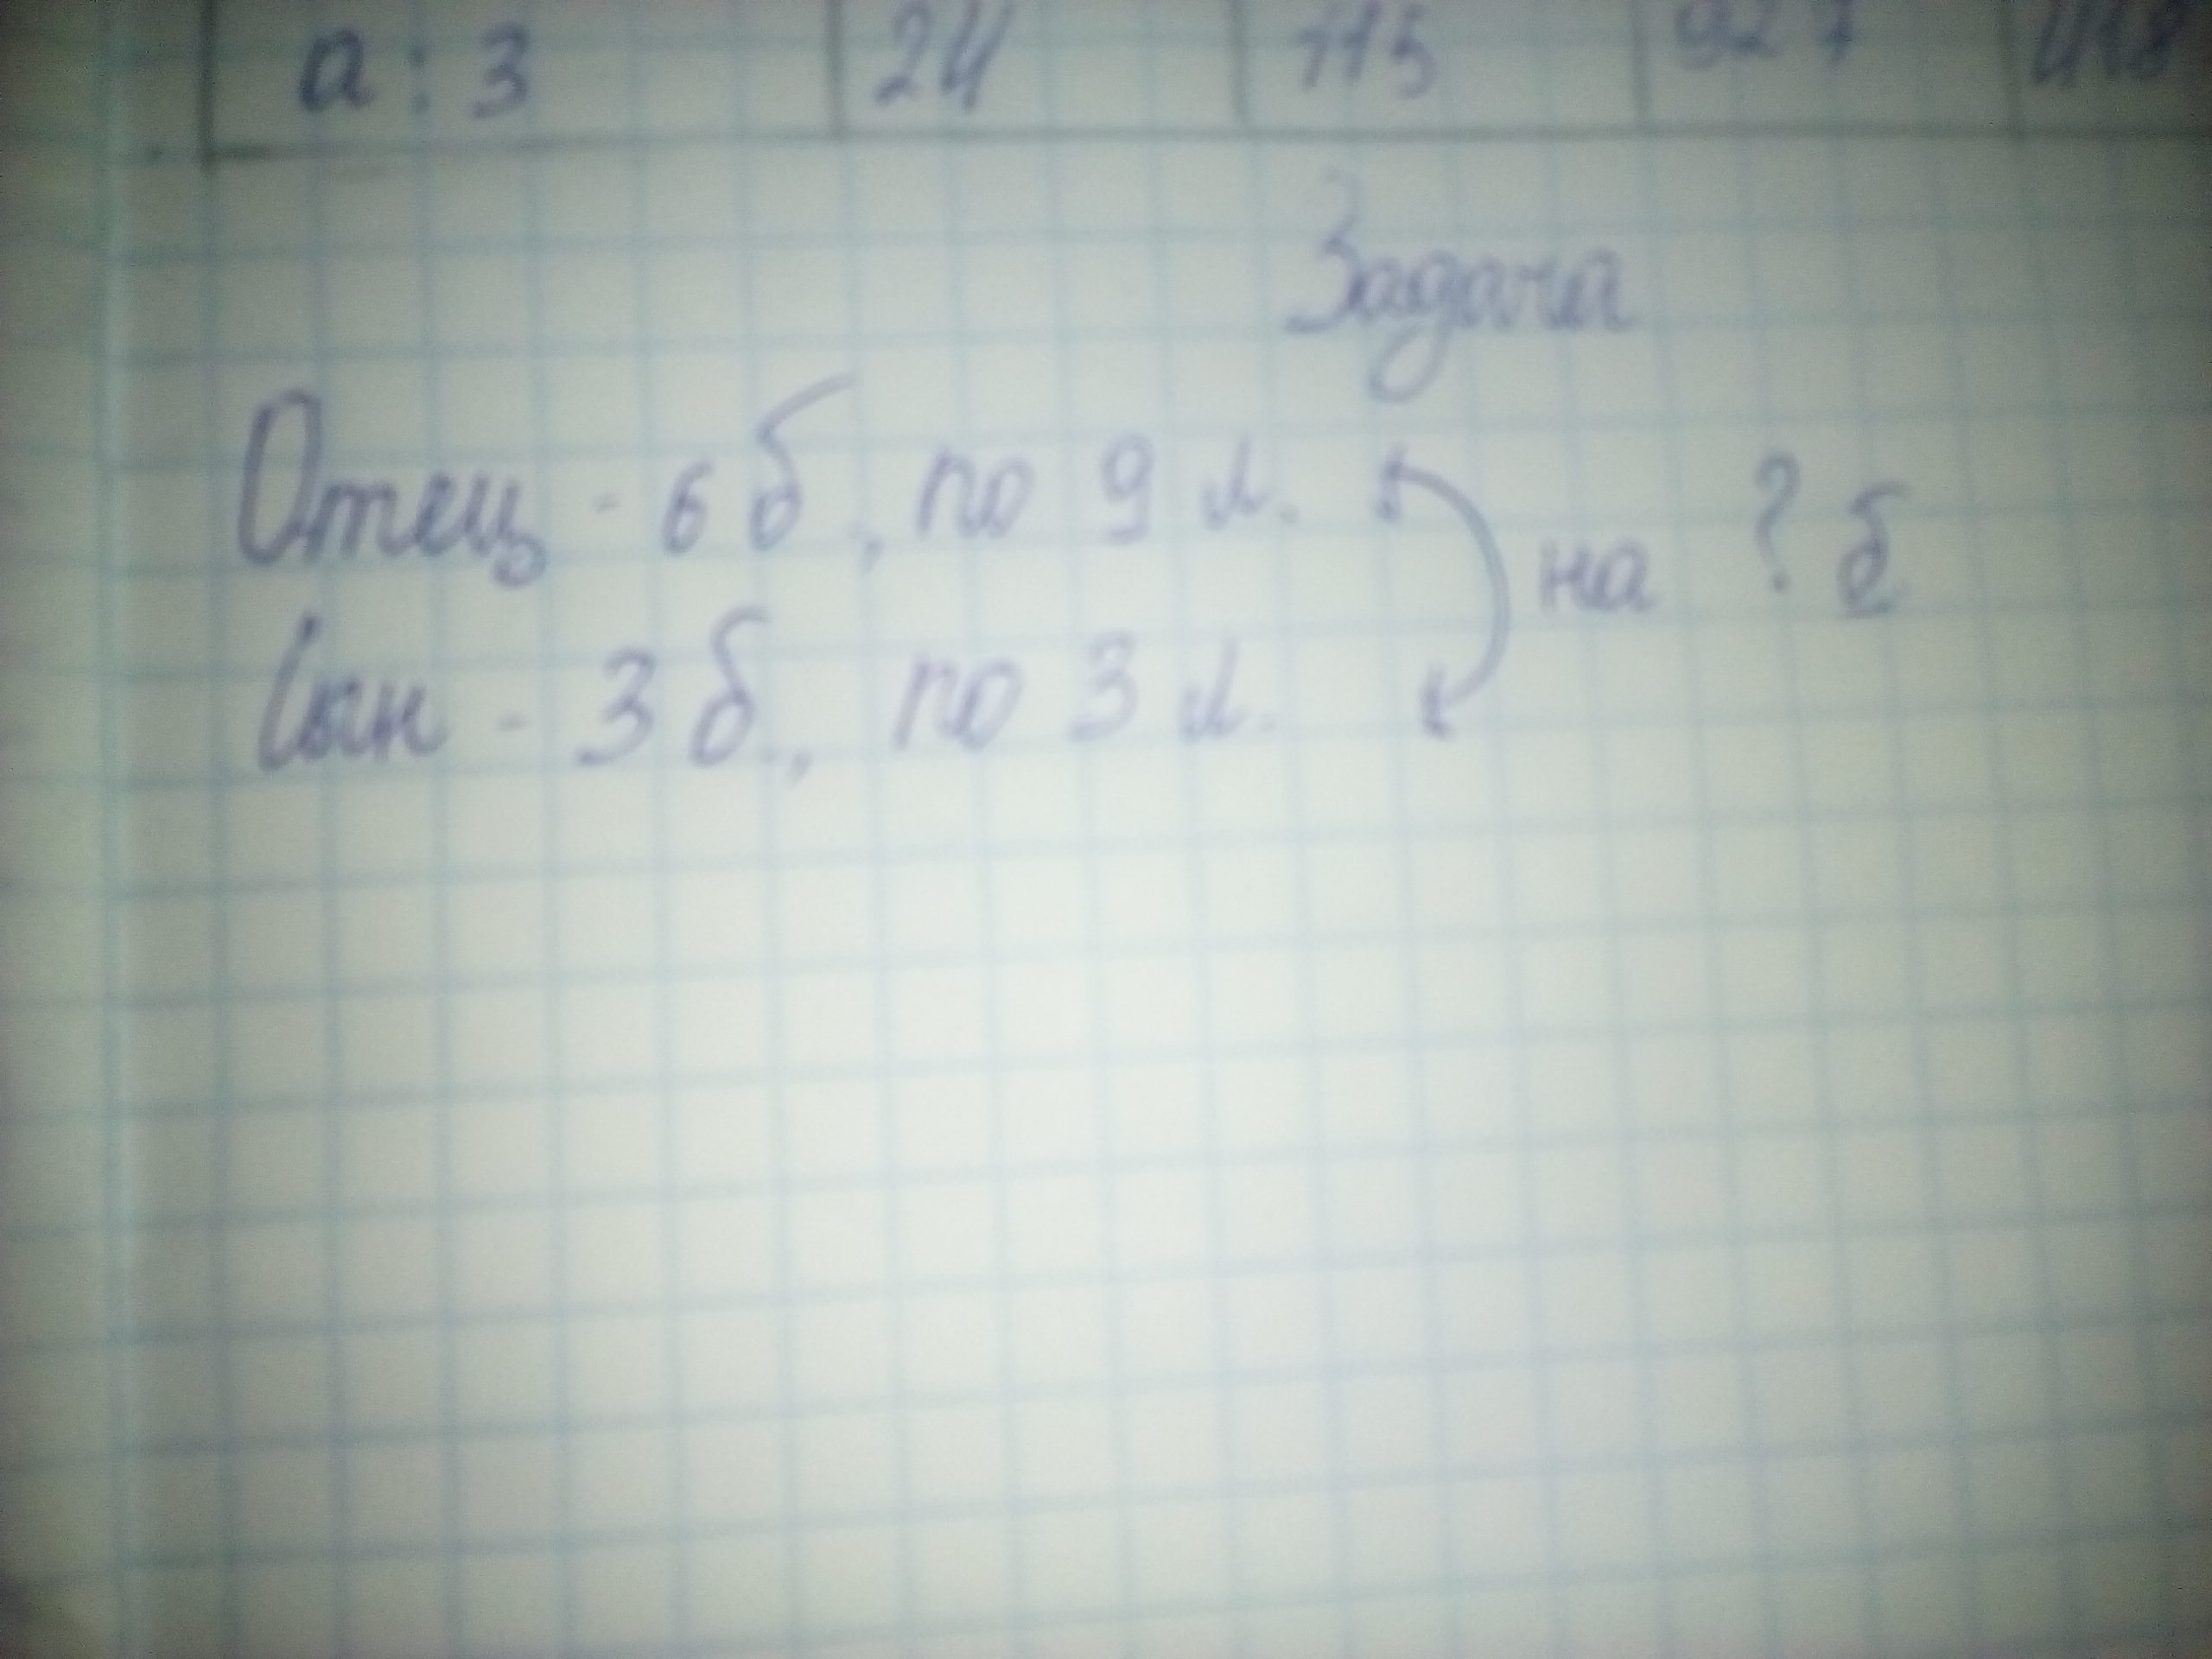 а : 3 24 115 927
Задача
Отец - 6 б., по 9 л.
на ? б
Сын - 3 б., по 3 л.